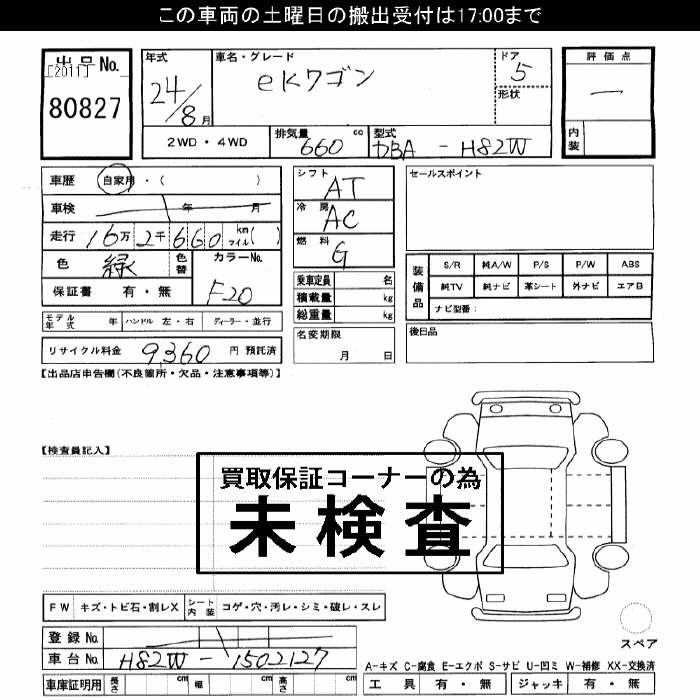 この車両の土曜日の搬出受付は17:00まで
出品No. [2011] 80827
年式 24/8月
車名・グレード ekワゴン
ドア 5
形状
評価点 一
内装
2WD・4WD
排気量 660 cc
型式 DBA-H82W
車歴 自家用・( )
車検 年 月
走行 16万2千660 km マイル( )
色 緑 色替 カラーNo. F20
保証書 有・無
モデル年式 年 ハンドル 左・右 ディーラー・並行
リサイクル料金 9,360 円 預託済
シフト AT
冷房 AC
燃料 G
乗車定員 名
積載量 kg
総重量 kg
名変期限 月 日
セールスポイント
装備品 S/R 純A/W P/S P/W ABS
純TV 純ナビ 革シート 外ナビ エアB
ナビ型番:
後日品
【出品店申告欄(不良箇所・欠品・注意事項等)】
【検査員記入】
買取保証コーナーの為
未検査
FW キズ・トビ石・割レX シート内装 コゲ・穴・汚レ・シミ・破レ・スレ
登録No.
車台No. H82W-1502127
車庫証明用 長さ cm 幅 cm 高さ cm
スペア
A-キズ C-腐食 E-エクボ S-サビ U-凹ミ W-補修 XX-交換済
工具 有・無 ジャッキ 有・無